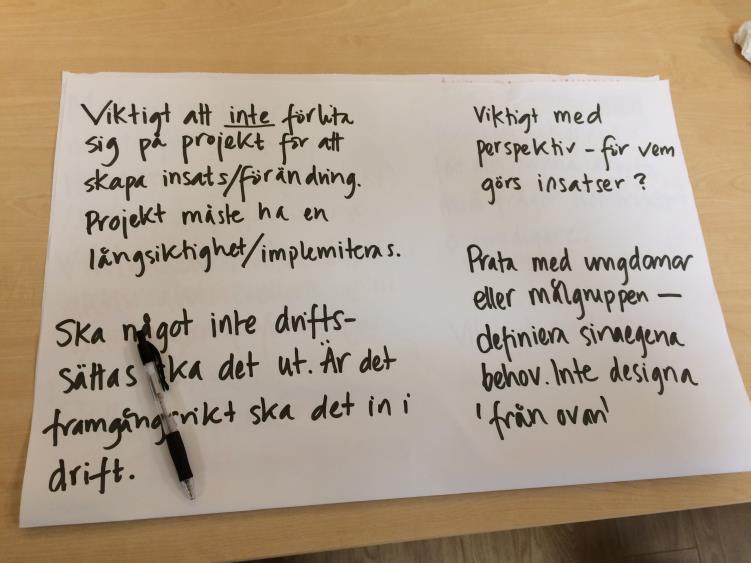 Viktigt att inte förlita
sig på projekt för att
skapa insats/förändring.
Projekt måste ha en
långsiktighet/implemiteras.
Ska något inte drifts-
sättas ska det ut. Är det
framgångsrikt ska det in i
drift.
Viktigt med
perspektiv - för vem
görs insatser?
Prata med ungdomar
eller målgruppen —
definiera sina egena
behov. Inte designa
'från ovan'